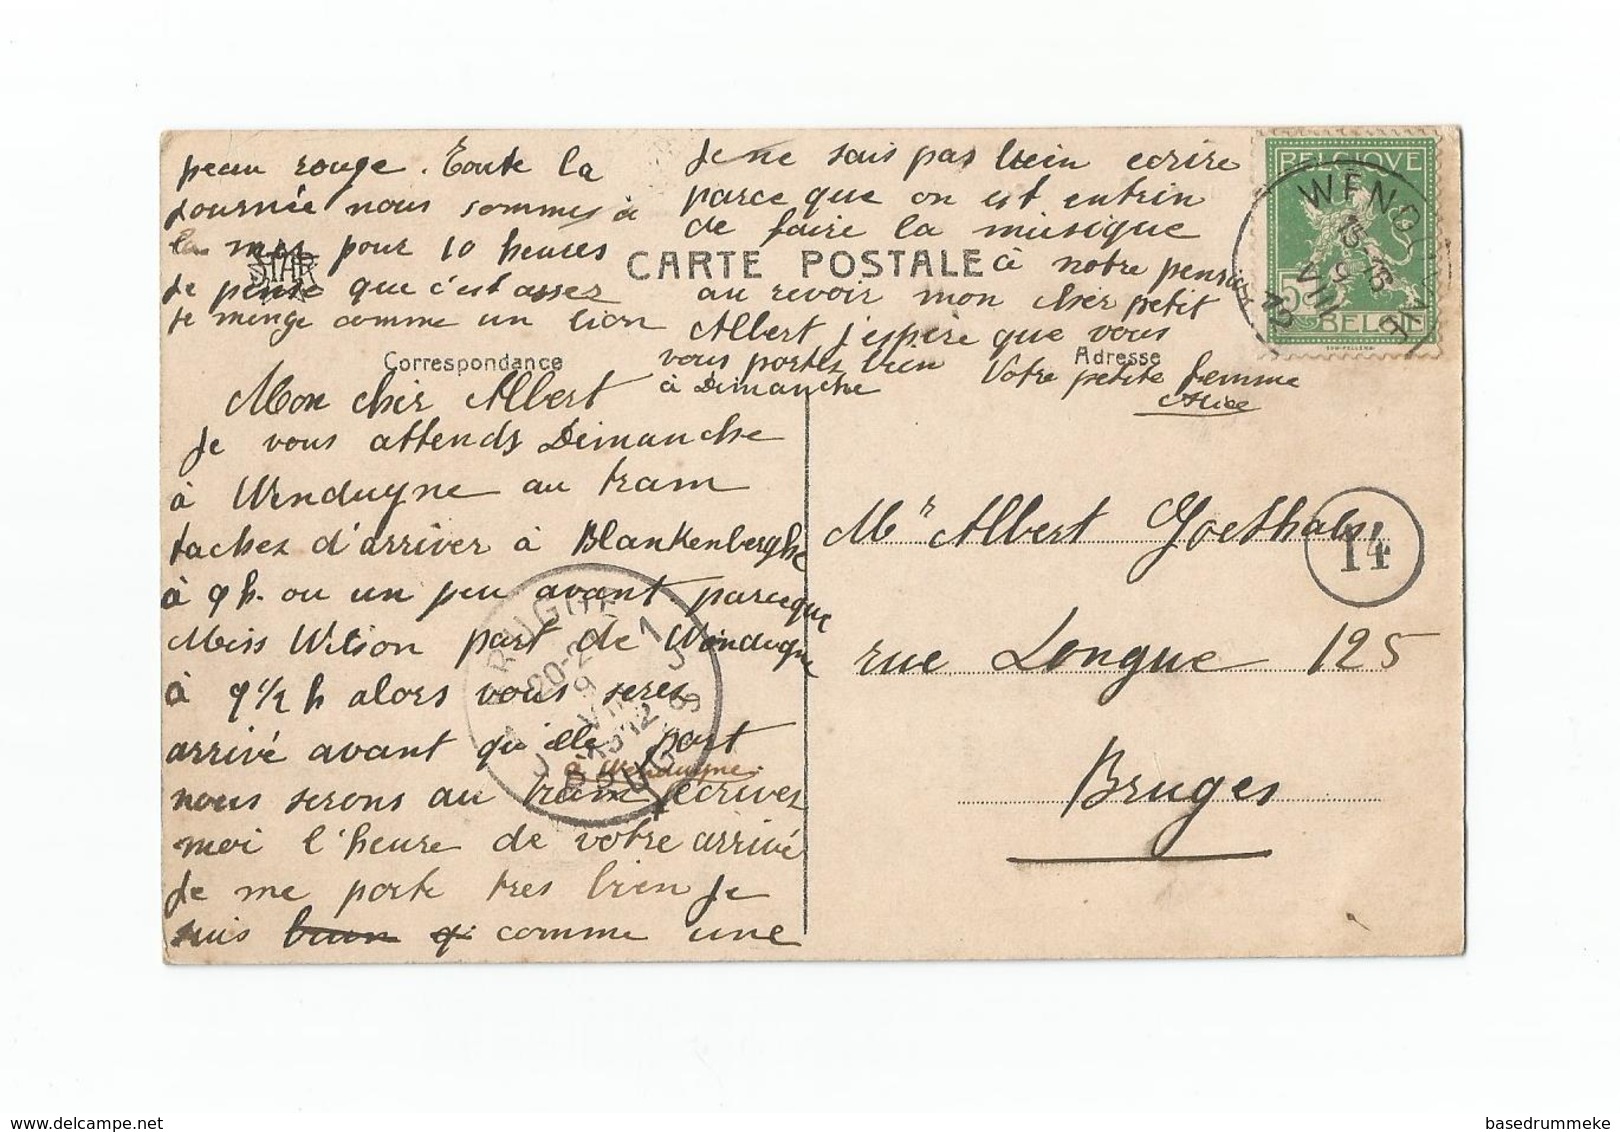 Mon cher Albert
Je vous attends Dimanche
à Wenduyne au tram
taches d'arriver à Blankenberghe
à 9 h. ou un peu avant parceque
Miss Wilson part de Wenduyne
à 9 1/2 h alors vous seres
arrivé avant qu'elle part
à Wenduyne.
nous serons au tram ecrives
moi l'heure de votre arrivé
Je me porte tres bien Je
suis comme une
peau rouge. Toute la
journée nous sommes à
la mer pour 10 heures
Je pense que c'est asses
Je menge comme un lion
Je ne sais pas bien ecrire
parce que on est entrin
de faire la musique
à notre pension
au revoir mon cher petit
Albert j'espère que vous
vous portes bien
à Dimanche
Votre petite femme
Alice
STAR
CARTE POSTALE
Correspondance
Adresse
Mr Albert Goethals
rue Longue 125
Bruges
14
BELGIQUE
5
BELGIE
WENDUYNE
15 16
9
VIII
12
BRUGGE 1
20-21
9
VIII
1912
BRUGES
basedrummeke